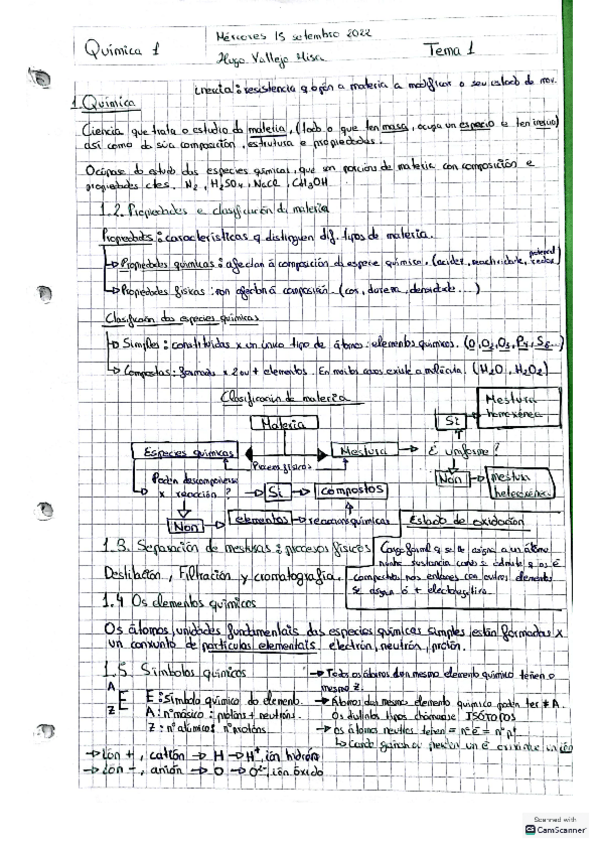 Química 1
Mércores 15 setembro 2022
Hugo Vallejo Misa
Tema 1
inercia: resistencia q opón a materia a modificar o seu estado de mov.
1. Química
Ciencia que trata o estudio da materia, (todo o que ten masa, ocupa un espacio e ten inercia)
así como da súa composición, estrutura e propiedades.
Ocúpase do estudo das especies químicas, que son porcións de materia con composición e
propiedades ctes. N₂, H₂SO₄, NaCl, CH₃OH
1.2. Propiedades e clasificación da materia
Propiedades: características q distinguen dif. tipos de materia.
→ Propiedades químicas: afectan á composición da especie química. (acidez, reactividade, potencial redox)
→ Propiedades físicas: non afectan á composición (cor, dureza, densidade...)
Clasificación das especies químicas
→ Simples: constituídas x un único tipo de átomo: elementos químicos. (O, O₂, O₃, P₄, S₈...)
→ Compostas: formadas x 2 ou + elementos. En moitos casos existe a molécula. (H₂O, H₂O₂)
Clasificación da materia
Materia
Especies químicas
Procesos físicos
Mestura
É uniforme?
Si
Mestura
homoxénea
Non
mestura
heteroxénea
Poden descompoñerse
x reacción?
Si
compostos
Non
elementos
reaccións químicas
Estado de oxidación
Carga formal q se lle asigna a un átomo
nunha sustancia cando se admite q os é
compartidos nos enlaces con outros elementos
se asignan ó + electronegativo.
1.3. Separación de mesturas: procesos físicos
Destilación, Filtración y cromatografía.
1.4 Os elementos químicos
Os átomos, unidades fundamentais das especies químicas simples, están formadas x
un conxunto de partículas elementais: electrón, neutrón, protón.
1.5. Símbolos químicos
A
Z
E
E: Símbolo químico do elemento.
A: nº másico: protóns + neutróns.
Z: nº atómico: nº protóns
→ Todos os átomos dun mesmo elemento químico teñen o
mesmo Z.
→ Átomos dun mesmo elemento químico poden ter ≠ A.
Os distintos tipos chámanse ISÓTOPOS
→ os átomos neutros teñen = nº é = nº p⁺
↳ cando gañan ou perden un é
→ Ión +, catión → H → H⁺, ión hidróxeno
→ Ión -, anión → O → O²⁻, ión óxido
Scanned with
CamScanner